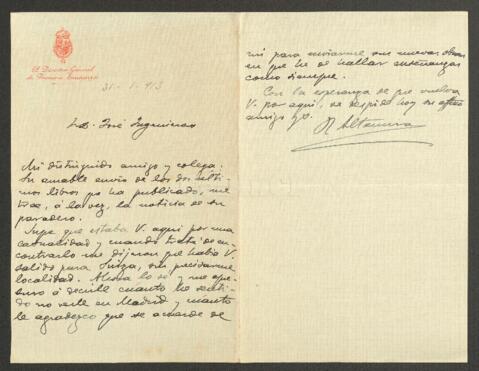 El Director General
de Primera Enseñanza
31-1-913
Sr. D. José Ingenieros
Mi distinguido amigo y colega:
Su amable envío de los dos últi-
mos libros qe ha publicado, me
trae, á la vez, la noticia de su
paradero.
Supe que estaba V. aquí por una
casualidad y cuando traté de en-
contrarlo me dijeron que había V.
salido para Suiza, sin precisarme
localidad. Ahora lo sé y me apre-
suro á decirle cuanto he senti-
do no verle en Madrid y cuanto
le agradezco que se acuerde de
mí para enviarme sus nuevas obras
en qe he de hallar enseñanzas
como siempre.
Con la esperanza de que vuelva
V. por aquí, se despide hoy su affmo
amigo
R Altamira